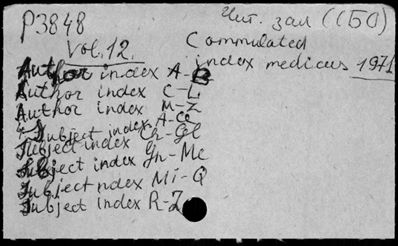 P3848
Чит. зал (СБО)
Vol. 12.
Commulated
index medicus 1971
Author index A-B
Author index C-L
Author index M-Z
Subject index A-Ce
Subject index Ch-Gl
Subject index Gn-Mc
Subject ndex Mi-Q
Subject index R-Z